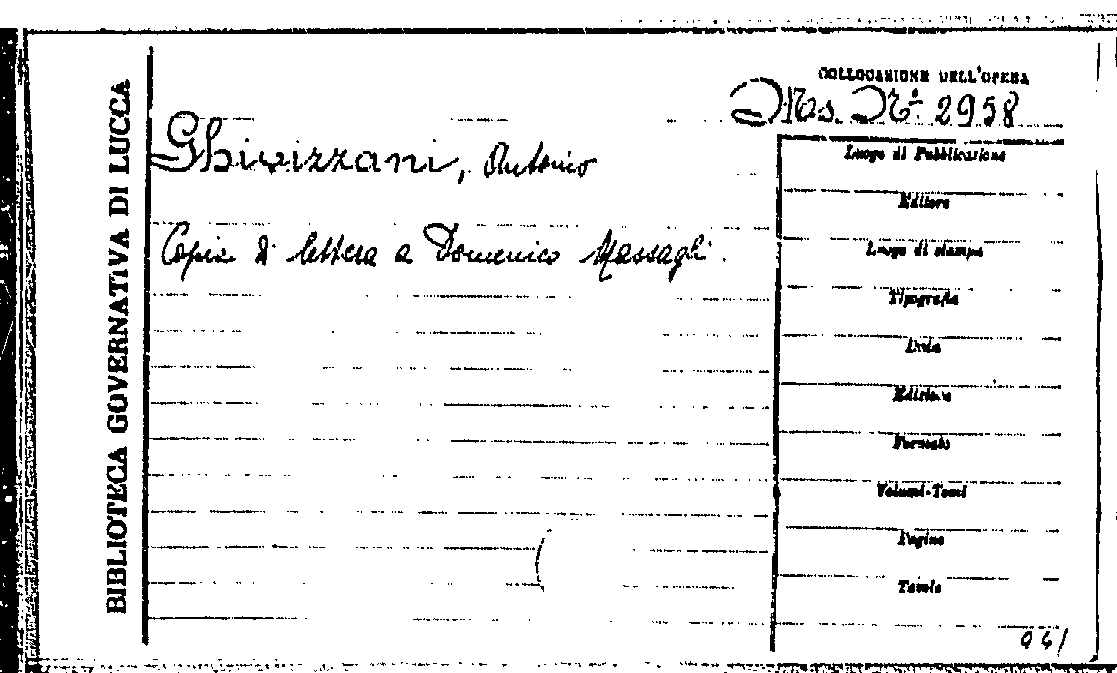 BIBLIOTECA GOVERNATIVA DI LUCCA
COLLOCAZIONE DELL'OPERA
Ms. N.° 2958
Ghivizzani, Antonio
Copia di lettera a Domenico Massagli.
Luogo di Pubblicazione
Editore
Luogo di stampa
Tipografia
Data
Edizione
Formato
Volumi-Tomi
Pagine
Tavole